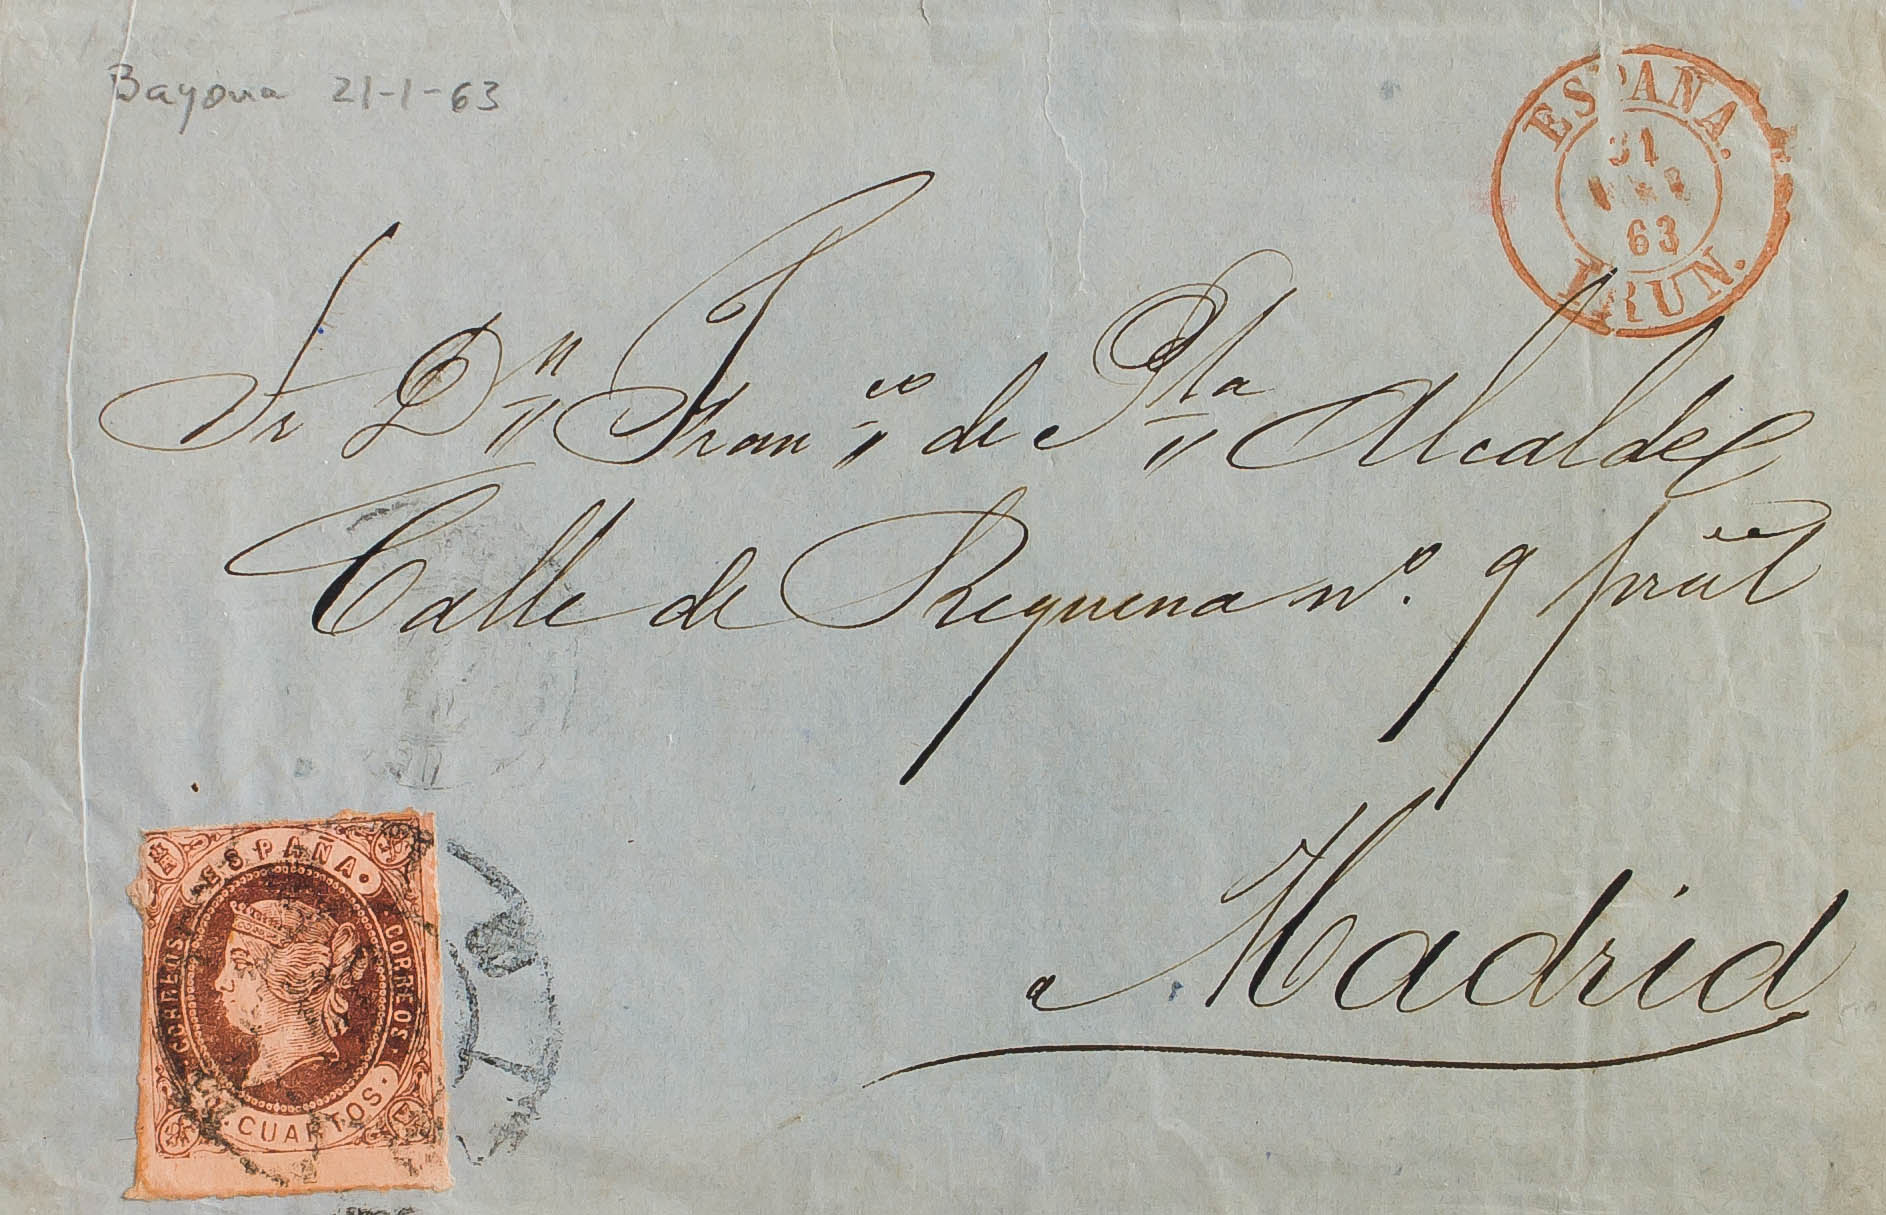 Bayona 21-1-63
ESPAÑA.
63
IRUN.
Sr Dn Franco de Pta Alcalde
Calle de Requena nº. 9 pral
a Madrid
ESPAÑA.
CORREOS
CORREOS
CUARTOS.